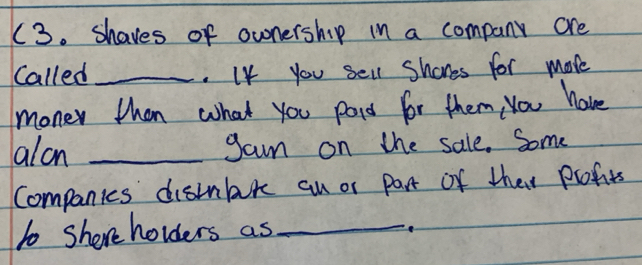 (3. Shares of ownership in a company are
called ______. If you sell shares for more
money than what you paid for them, you have
a/an ______ gain on the sale. Some
Companies distribute all or part of their profits
to shareholders as ______.